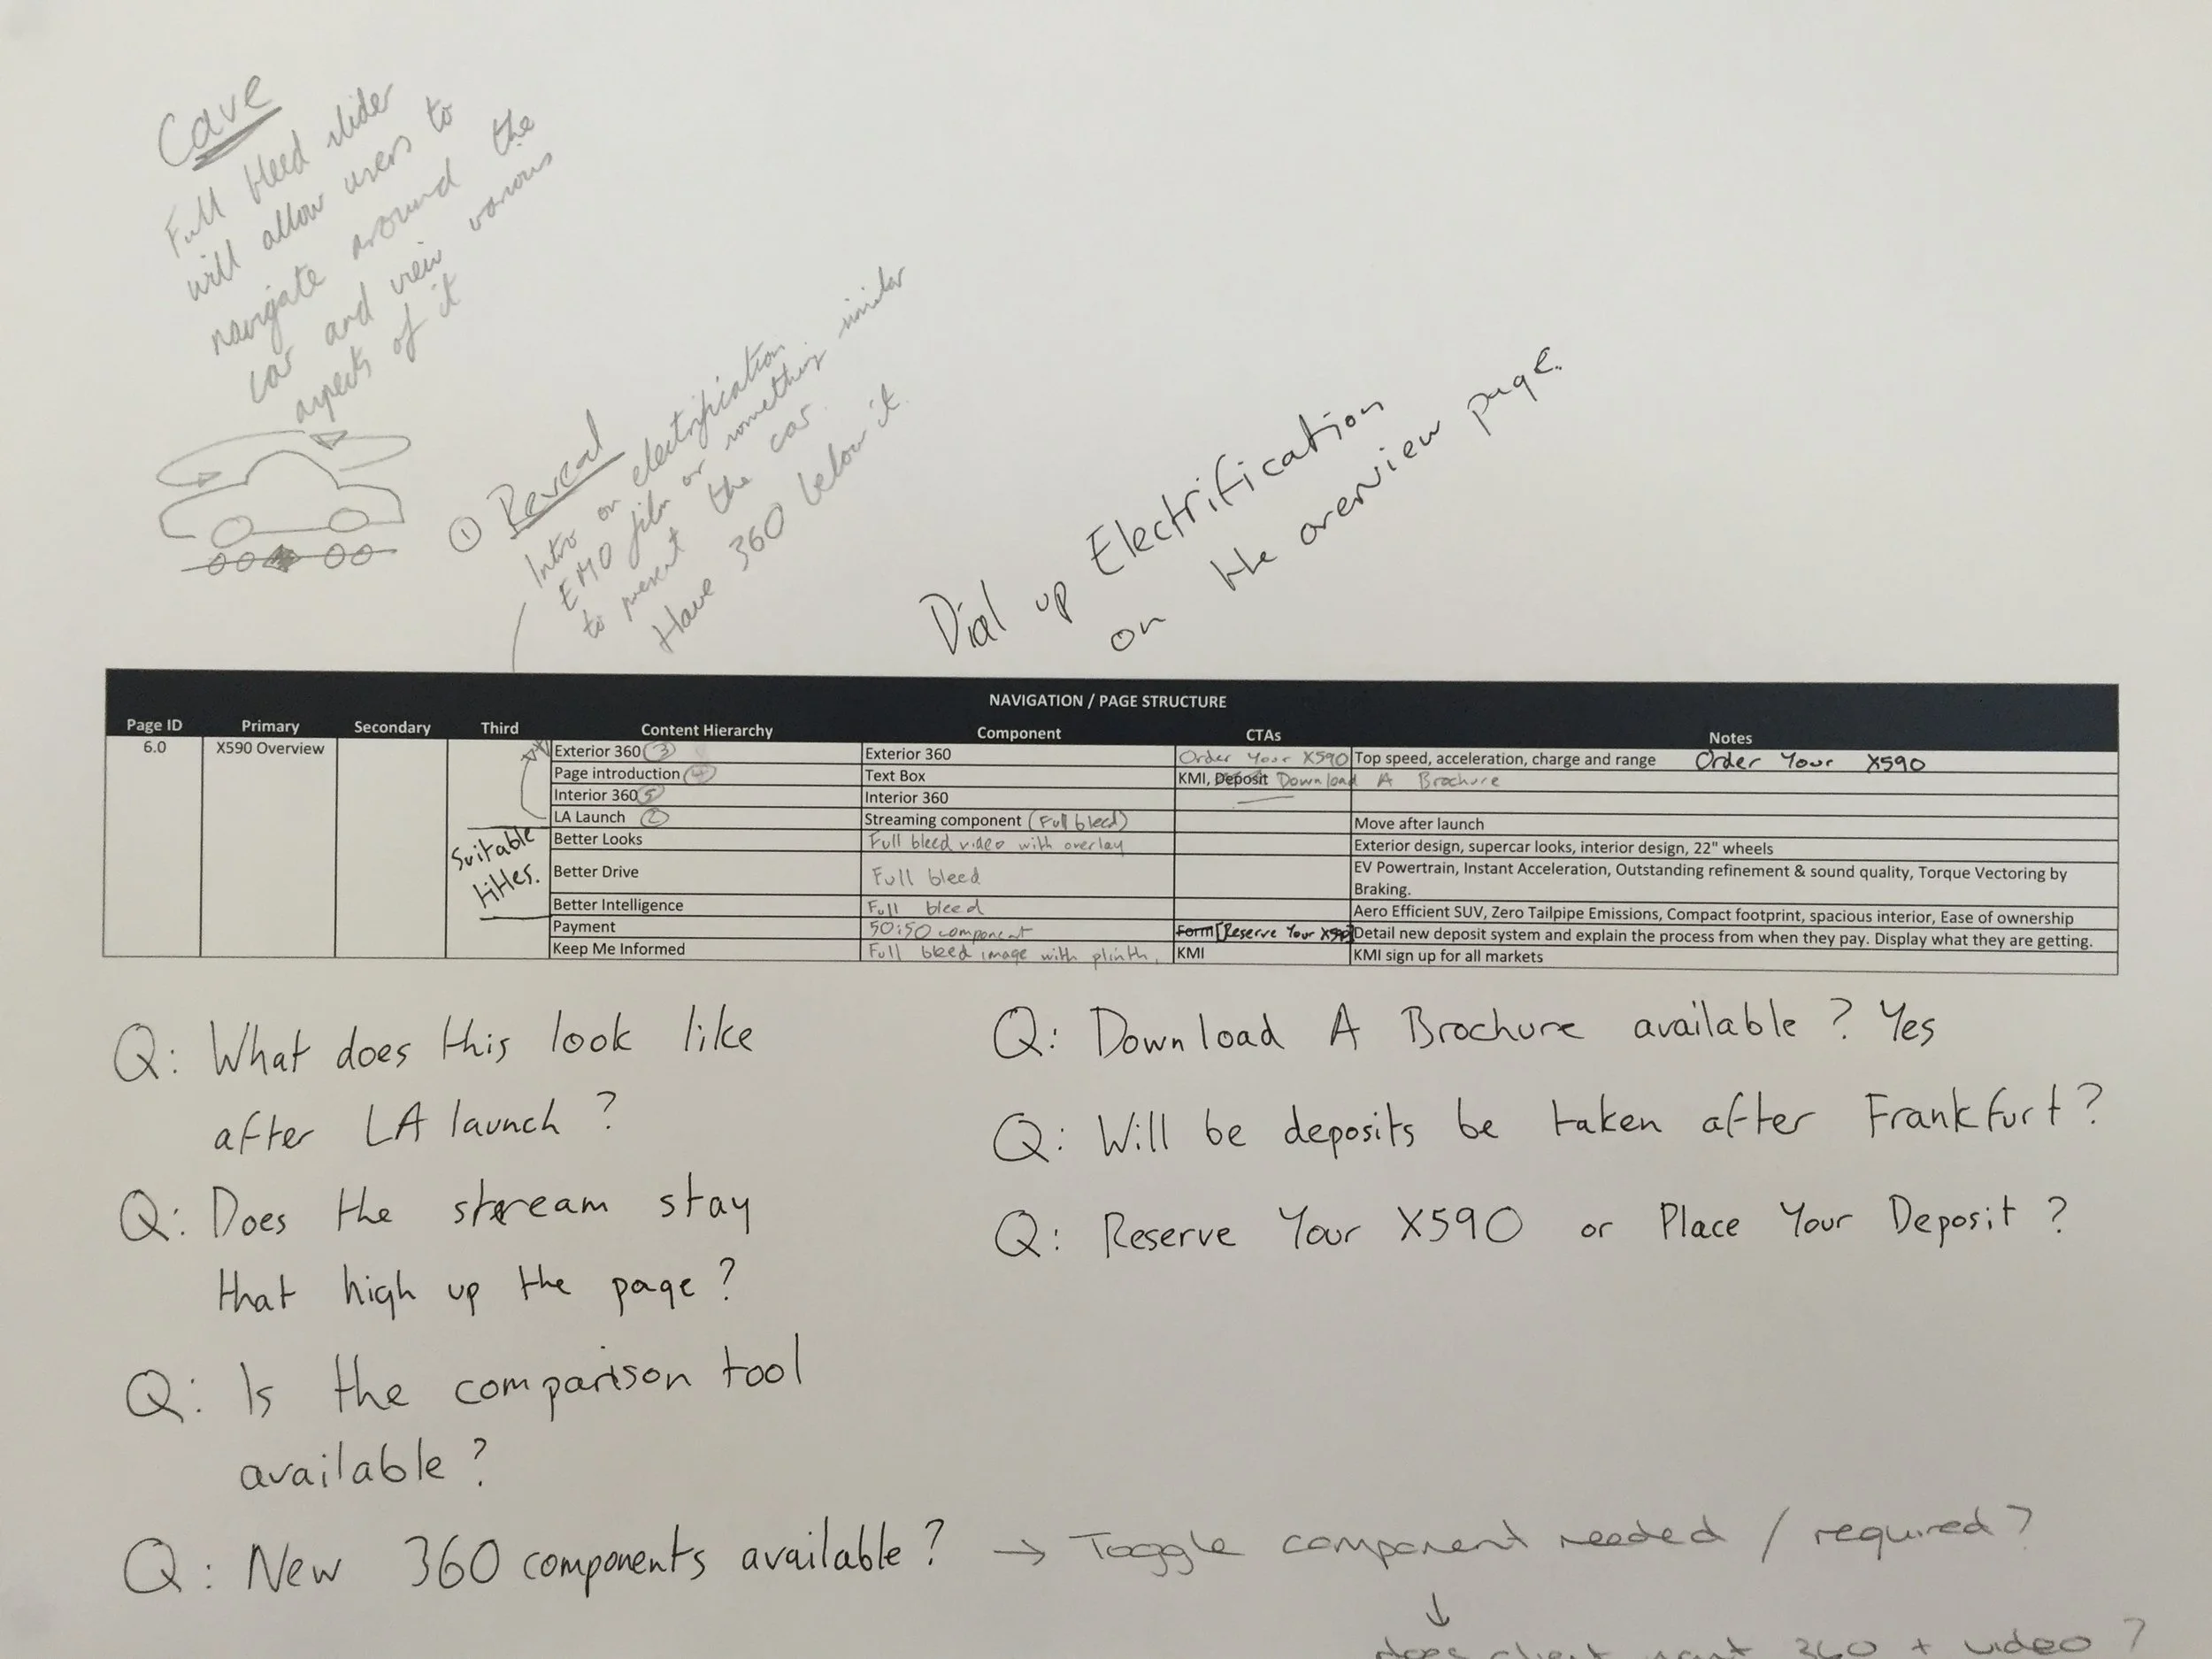 Cave
Full bleed slider
will allow users to
navigate around the
car and view various
aspects of it
① Reveal
Intro on electrification
EMO film or something similar
to present the car.
Have 360 below it.
Dial up Electrification
on the overview page.
NAVIGATION / PAGE STRUCTURE
Page ID Primary Secondary Third Content Hierarchy Component CTAs Notes
6.0 X590 Overview Exterior 360 ③ Exterior 360 Order Your X590 Top speed, acceleration, charge and range Order Your X590
Page introduction ④ Text Box KMI, Deposit Download A Brochure
Interior 360 ⑤ Interior 360
LA Launch ② Streaming component (Full bleed) Move after launch
Suitable
titles.
Better Looks Full bleed video with overlay Exterior design, supercar looks, interior design, 22" wheels
Better Drive Full bleed EV Powertrain, Instant Acceleration, Outstanding refinement & sound quality, Torque Vectoring by
Braking.
Better Intelligence Full bleed Aero Efficient SUV, Zero Tailpipe Emissions, Compact footprint, spacious interior, Ease of ownership
Payment 50:50 component Form [Reserve Your X590] Detail new deposit system and explain the process from when they pay. Display what they are getting.
Keep Me Informed Full bleed image with plinth. KMI KMI sign up for all markets
Q: What does this look like
after LA launch?
Q: Does the stream stay
that high up the page?
Q: Is the comparison tool
available?
Q: New 360 components available? → Toggle component needed / required?
↓
does client want 360 + video?
Q: Download A Brochure available? Yes
Q: Will be deposits be taken after Frankfurt?
Q: Reserve Your X590 or Place Your Deposit?